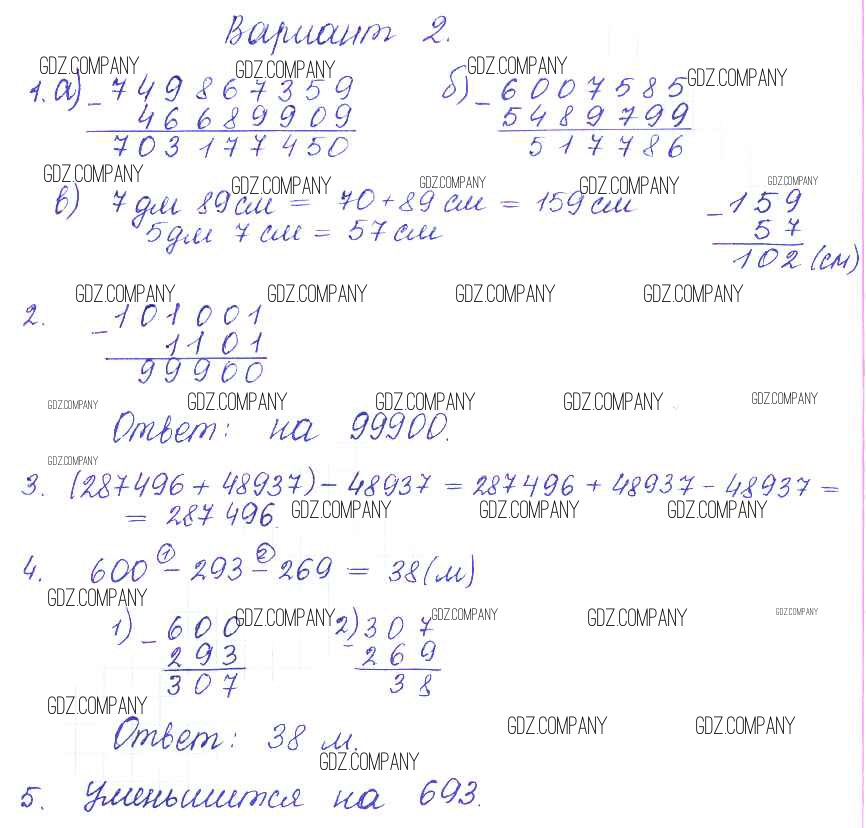 Вариант 2.
GDZ.COMPANY GDZ.COMPANY GDZ.COMPANY GDZ.COMPANY
1. а) - 749867359 б) - 6007585
46689909 5489799
703177450 517786
GDZ.COMPANY GDZ.COMPANY GDZ.COMPANY GDZ.COMPANY GDZ.COMPANY
в) 7 дм 89 см = 70 + 89 см = 159 см - 159
5 дм 7 см = 57 см 57
102 (см)
GDZ.COMPANY GDZ.COMPANY GDZ.COMPANY GDZ.COMPANY
2. - 101001
1101
99900
GDZ.COMPANY GDZ.COMPANY GDZ.COMPANY GDZ.COMPANY GDZ.COMPANY
Ответ: на 99900.
GDZ.COMPANY
3. (287496 + 48937) - 48937 = 287496 + 48937 - 48937 =
= 287496. GDZ.COMPANY GDZ.COMPANY GDZ.COMPANY
① ②
4. 600 - 293 - 269 = 38 (м)
GDZ.COMPANY
1) - 600 GDZ.COMPANY 2) - 307 GDZ.COMPANY GDZ.COMPANY GDZ.COMPANY
293 269
307 38
GDZ.COMPANY
Ответ: 38 м. GDZ.COMPANY GDZ.COMPANY
GDZ.COMPANY
5. Уменьшится на 693.